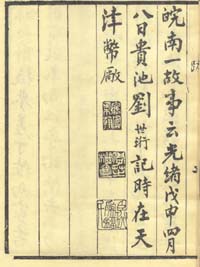 皖南一故事云光緒戊申四月
八日貴池劉世珩記時在天
津幣廠